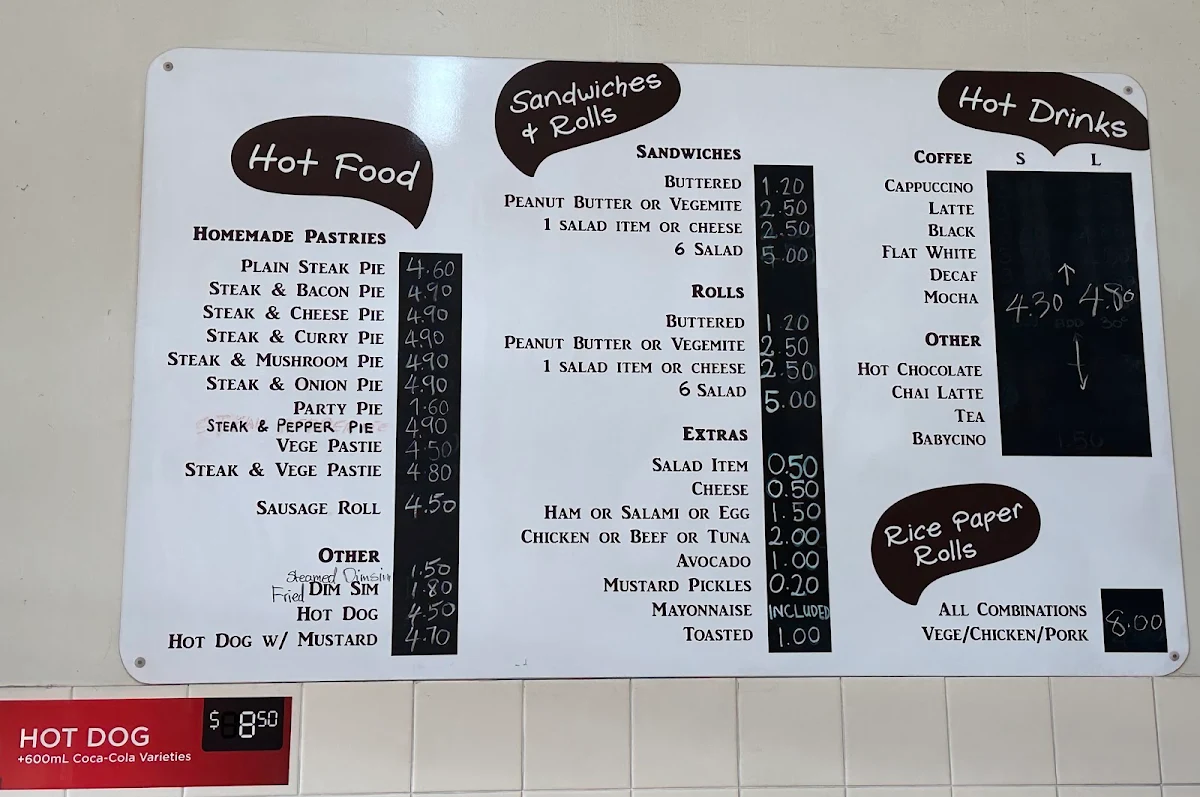 Hot Food
HOMEMADE PASTRIES
PLAIN STEAK PIE 4.60
STEAK & BACON PIE 4.90
STEAK & CHEESE PIE 4.90
STEAK & CURRY PIE 4.90
STEAK & MUSHROOM PIE 4.90
STEAK & ONION PIE 4.90
PARTY PIE 1.60
STEAK & PEPPER PIE 4.90
VEGE PASTIE 4.50
STEAK & VEGE PASTIE 4.80
SAUSAGE ROLL 4.50
OTHER
Steamed Dimsim 1.50
Fried DIM SIM 1.80
HOT DOG 4.50
HOT DOG W/ MUSTARD 4.70
Sandwiches
& Rolls
SANDWICHES
BUTTERED 1.20
PEANUT BUTTER OR VEGEMITE 2.50
1 SALAD ITEM OR CHEESE 2.50
6 SALAD 5.00
ROLLS
BUTTERED 1.20
PEANUT BUTTER OR VEGEMITE 2.50
1 SALAD ITEM OR CHEESE 2.50
6 SALAD 5.00
EXTRAS
SALAD ITEM 0.50
CHEESE 0.50
HAM OR SALAMI OR EGG 1.50
CHICKEN OR BEEF OR TUNA 2.00
AVOCADO 1.00
MUSTARD PICKLES 0.20
MAYONNAISE INCLUDED
TOASTED 1.00
Hot Drinks
COFFEE S L
CAPPUCCINO
LATTE
BLACK
FLAT WHITE
DECAF
MOCHA 4.30 4.80
OTHER
HOT CHOCOLATE
CHAI LATTE
TEA
BABYCINO 1.50
Rice Paper
Rolls
ALL COMBINATIONS
VEGE/CHICKEN/PORK 8.00
HOT DOG $8.50
+600mL Coca-Cola Varieties